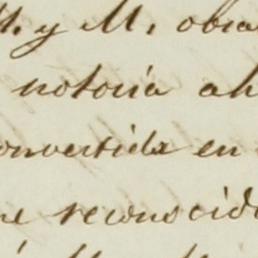 H. y M. obra
notoria ah
onvertida en
ne reconocid